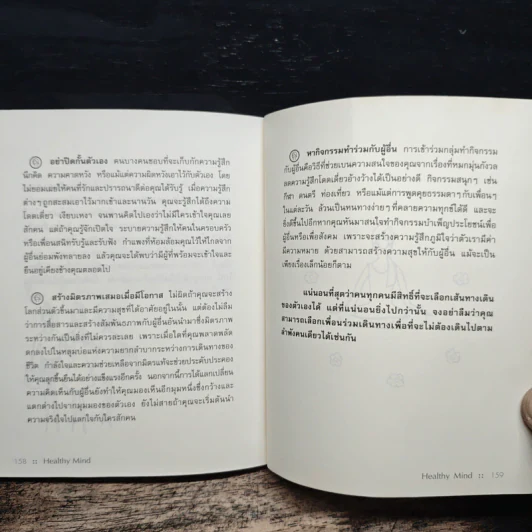 อย่าปิดกั้นตัวเอง คนบางคนชอบที่จะเก็บกักความรู้สึก
นึกคิด ความคาดหวัง หรือแม้แต่ความผิดหวังเอาไว้กับตัวเอง โดย
ไม่ยอมเผยให้คนที่รักและปรารถนาดีต่อคุณได้รับรู้ เมื่อความรู้สึก
ต่างๆถูกสะสมเอาไว้มากเข้าและนานวัน คุณจะรู้สึกได้ถึงความ
โดดเดี่ยว เงียบเหงา จนพานคิดไปเองว่าไม่มีใครเข้าใจคุณเลย
สักคน แต่ถ้าคุณรู้จักเปิดใจ ระบายความรู้สึกให้คนในครอบครัว
หรือเพื่อนสนิทรับรู้และรับฟัง กำแพงที่ห้อมล้อมคุณไว้ให้ไกลจาก
ผู้อื่นย่อมพังทลายลง แล้วคุณจะได้พบว่ามีผู้ที่พร้อมจะเข้าใจและ
ยืนอยู่เคียงข้างคุณตลอดไป
สร้างมิตรภาพเสมอเมื่อมีโอกาส ไม่ผิดถ้าคุณจะสร้าง
โลกส่วนตัวขึ้นมาและมีความสุขที่ได้อาศัยอยู่ในนั้น แต่ต้องไม่ลืม
ว่าการสื่อสารและสร้างสัมพันธภาพกับผู้อื่นอันนำมาซึ่งมิตรภาพ
ระหว่างกันเป็นสิ่งที่ไม่ควรละเลย เพราะเมื่อใดที่คุณพลาดพลัด
ตกลงไปในหลุมบ่อแห่งความยากลำบากระหว่างการเดินทางของ
ชีวิต กำลังใจและความช่วยเหลือจากมิตรแท้จะช่วยประคับประคอง
ให้คุณลุกขึ้นยืนได้อย่างแข็งแรงอีกครั้ง นอกจากนี้การได้แลกเปลี่ยน
ความคิดเห็นกับผู้อื่นยังทำให้คุณมองเห็นอีกมุมหนึ่งซึ่งกว้างและ
แตกต่างไปจากมุมมองของตัวเอง ยังไม่สายถ้าคุณจะเริ่มต้นนำ
ความจริงใจไปแลกใจกับใครสักคน
158 :: Healthy Mind
หากิจกรรมทำร่วมกับผู้อื่น การเข้าร่วมกลุ่มทำกิจกรรม
กับผู้อื่นคือวิธีที่ช่วยเบนความสนใจของคุณจากเรื่องที่หมกมุ่นกังวล
ลดความรู้สึกโดดเดี่ยวอ้างว้างได้เป็นอย่างดี กิจกรรมสนุกๆ เช่น
กีฬา ดนตรี ท่องเที่ยว หรือแม้แต่การพูดคุยธรรมดาๆกับเพื่อนๆ
ในแต่ละวัน ล้วนเป็นหนทางง่ายๆ ที่คลายความทุกข์ได้ดี และจะ
ยิ่งดีขึ้นไปอีกหากคุณหันมาสนใจทำกิจกรรมบำเพ็ญประโยชน์เพื่อ
ผู้อื่นหรือเพื่อสังคม เพราะจะสร้างความรู้สึกภูมิใจว่าตัวเรามีค่า
มีความหมาย ด้วยสามารถสร้างความสุขให้กับผู้อื่น แม้จะเป็น
เพียงเรื่องเล็กน้อยก็ตาม
แน่นอนที่สุดว่าคนทุกคนมีสิทธิ์ที่จะเลือกเส้นทางเดิน
ของตัวเองได้ แต่ที่แน่นอนยิ่งไปกว่านั้น จงอย่าลืมว่าคุณ
สามารถเลือกเพื่อนร่วมเดินทางเพื่อที่จะไม่ต้องเดินไปตาม
ลำพังคนเดียวได้เช่นกัน
Healthy Mind :: 159